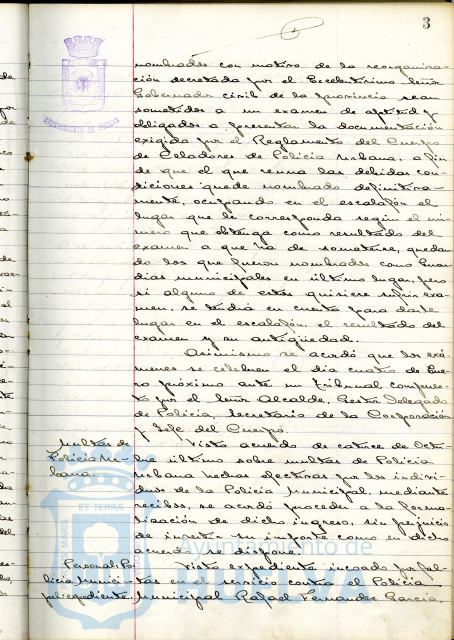 3
AYUNTAMIENTO DE HUELVA
nombrados con motivo de la reorganiza-
ción decretada por el Excelentísimo Señor
Gobernador civil de la provincia sean
sometidos a un examen de aptitud y
obligados a presentar la documentación
exigida por el Reglamento del Cuerpo
de Celadores de Policia Urbana, a fin
de que el que reuna las debidas con-
diciones quede nombrado definitiva-
mente, ocupando en el escalafón el
lugar que le corresponda según el nú-
mero que obtenga como resultado del
examen a que ha de someterse, quedan-
do los que fueron nombrados como Guar-
dias municipales en último lugar, pero
si alguno de estos quisiere sufrir exa-
men, se tendrá en cuenta para darle
lugar en el escalafón, el resultado del
examen y su antigüedad.
Asimismo se acordó que los exá-
menes se celebren el dia cuatro de Ene-
ro próximo ante un tribunal compues-
to por el Señor Alcalde, Gestor Delegado
de Policia, Secretario de la Corporación
y Jefe del Cuerpo.
Multas de
Policia Ur-
bana.
Visto acuerdo de catorce de Octu-
bre último sobre multas de Policia
Urbana hechas efectivas por los indivi-
duos de la Policia Municipal, mediante
recibos, se acordó proceder a la forma-
lización de dicho ingreso, sin perjuicio
de invertir su importe como en dicho
acuerdo se dispone.
Personal: Po-
licia Munici-
pal: expediente.
Visto expediente incoado por fal-
tas en el servicio contra el Policia
Municipal Rafael Fernandez Garcia,
ET TERRÆ
MARIS
Ayuntamiento de
HUELVA